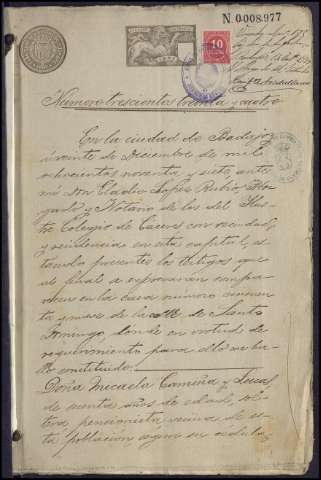 N. 0.008.977
10
Número trescientos treinta y cuatro
En la ciudad de Badajoz
á veinte de Diciembre de mil
ochocientos noventa y siete ante
mí Don Eladio López Rubio Abo-
gado y Notario de los del Ilus-
tre Colegio de Cáceres con vecindad
y residencia en esta capital, es-
tando presentes los testigos que
al final se expresarán compa-
rece en la casa número cincuen-
ta y nueve de la calle de Santo
Domingo, donde en virtud de
requerimiento para ello me ha-
llo constituido.
Doña Micaela Comena y Lucas
de ochenta años de edad, solte-
ra, pensionista, vecina de es-
ta población según su cédula